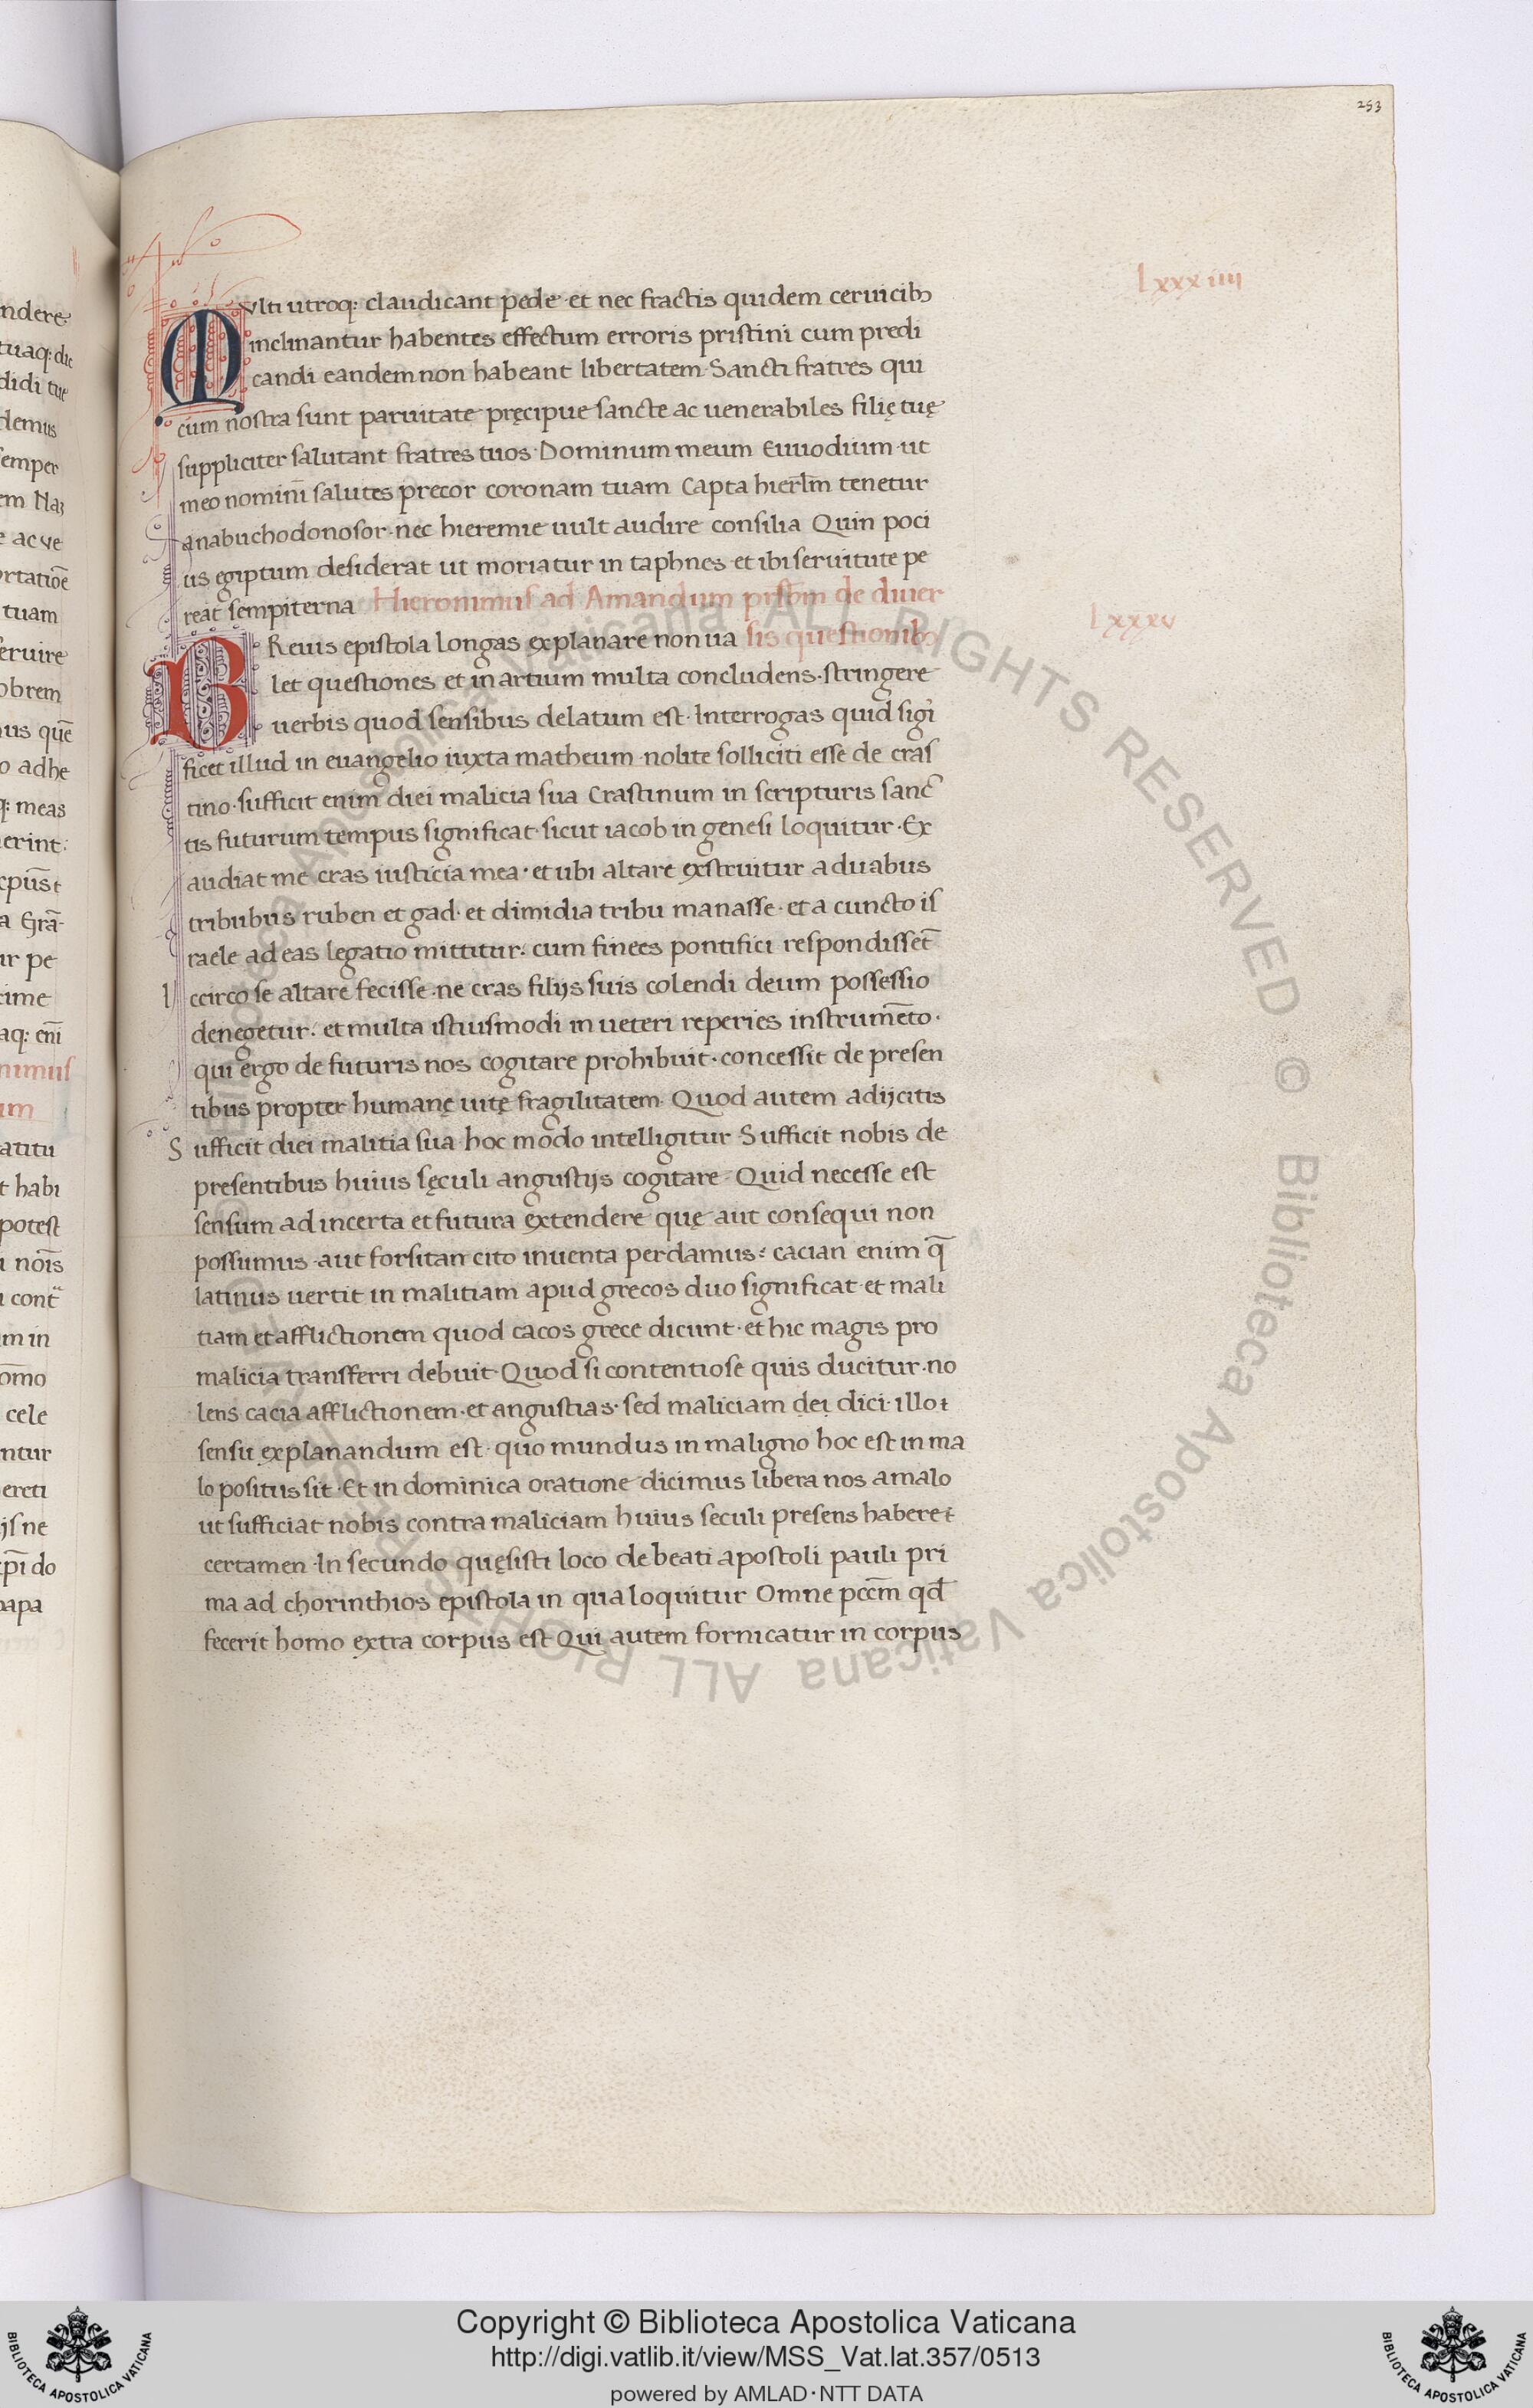 253
Lxxxiiii
MVlti utroq: claudicant pede et nec fractis quidem ceruicibꝫ
inclinantur habentes effectum erroris pristini cum predi
candi eandem non habeant libertatem Sancti fratres qui
cum nostra sunt paruitate pręcipue sancte ac uenerabiles filię tuę
suppliciter salutant fratres tuos Dominum meum Euuodium ut
meo nominī salutes precor coronam tuam Capta hierl̄m tenetur
anabuchodonosor nec hieremie uult audire consilia Quin poci
us egiptum desiderat ut moriatur in taphnes et ibi seruitute pe
reat sempiterna Hieronimus ad Amandum prsb̄m de diuer
Lxxxv
BReuis epistola longas explanare non ua sis questionibꝫ
let questiones et in artium multa concludens stringere
uerbis quod sensibus delatum est Interrogas quid sigi
ficet illud in euangelio iuxta matheum nolite solliciti esse de cras
tino sufficit enim diei malicia sua Crastinum in scripturis sanc
tis futurum tempus significat sicut iacob in genesi loquitur Ex
audiat me cras iusticia mea et ubi altare exstruitur a duabus
tribubus ruben et gad et dimidia tribu manasse et a cuncto is
raele ad eas legatio mittitur. cum finees pontifici respondisset̄
Iccirco se altare fecisse ne cras filijs suis colendi deum possessio
denegetur. et multa istiusmodi in ueteri reperies instrumēto.
qui ergo de futuris nos cogitare prohibuit. concessit de presen
tibus propter humanę uitę fragilitatem Quod autem adijcitis
Sufficit diei malitia sua hoc modo intelligitur Sufficit nobis de
presentibus huius sęculi angustijs cogitare Quid necesse est
sensum ad incerta et futura extendere quę aut consequi non
possumus aut forsitan cito inuenta perdamus: cacian enim q̄
latinus uertit in malitiam apud grecos duo significat et mali
tiam et afflictionem quod cacos grece dicunt et hic magis pro
malicia transferri debuit Quod si contentiose quis ducitur no
lens cacia afflictionem et angustias sed maliciam dei dici illo
sensu explanandum est quo mundus in maligno hoc est in ma
lo positus sit Et in dominica oratione dicimus libera nos amalo
ut sufficiat nobis contra maliciam huius seculi presens habere
certamen In secundo quęsisti loco de beati apostoli pauli pri
ma ad chorinthios epistola in qua loquitur Omne pcc̄m qd̄
fecerit homo extra corpus est Qui autem fornicatur in corpus
Copyright © Biblioteca Apostolica Vaticana
http://digi.vatlib.it/view/MSS_Vat.lat.357/0513
powered by AMLAD·NTT DATA
BIBLIOTECA APOSTOLICA VATICANA
BIBLIOTECA APOSTOLICA VATICANA